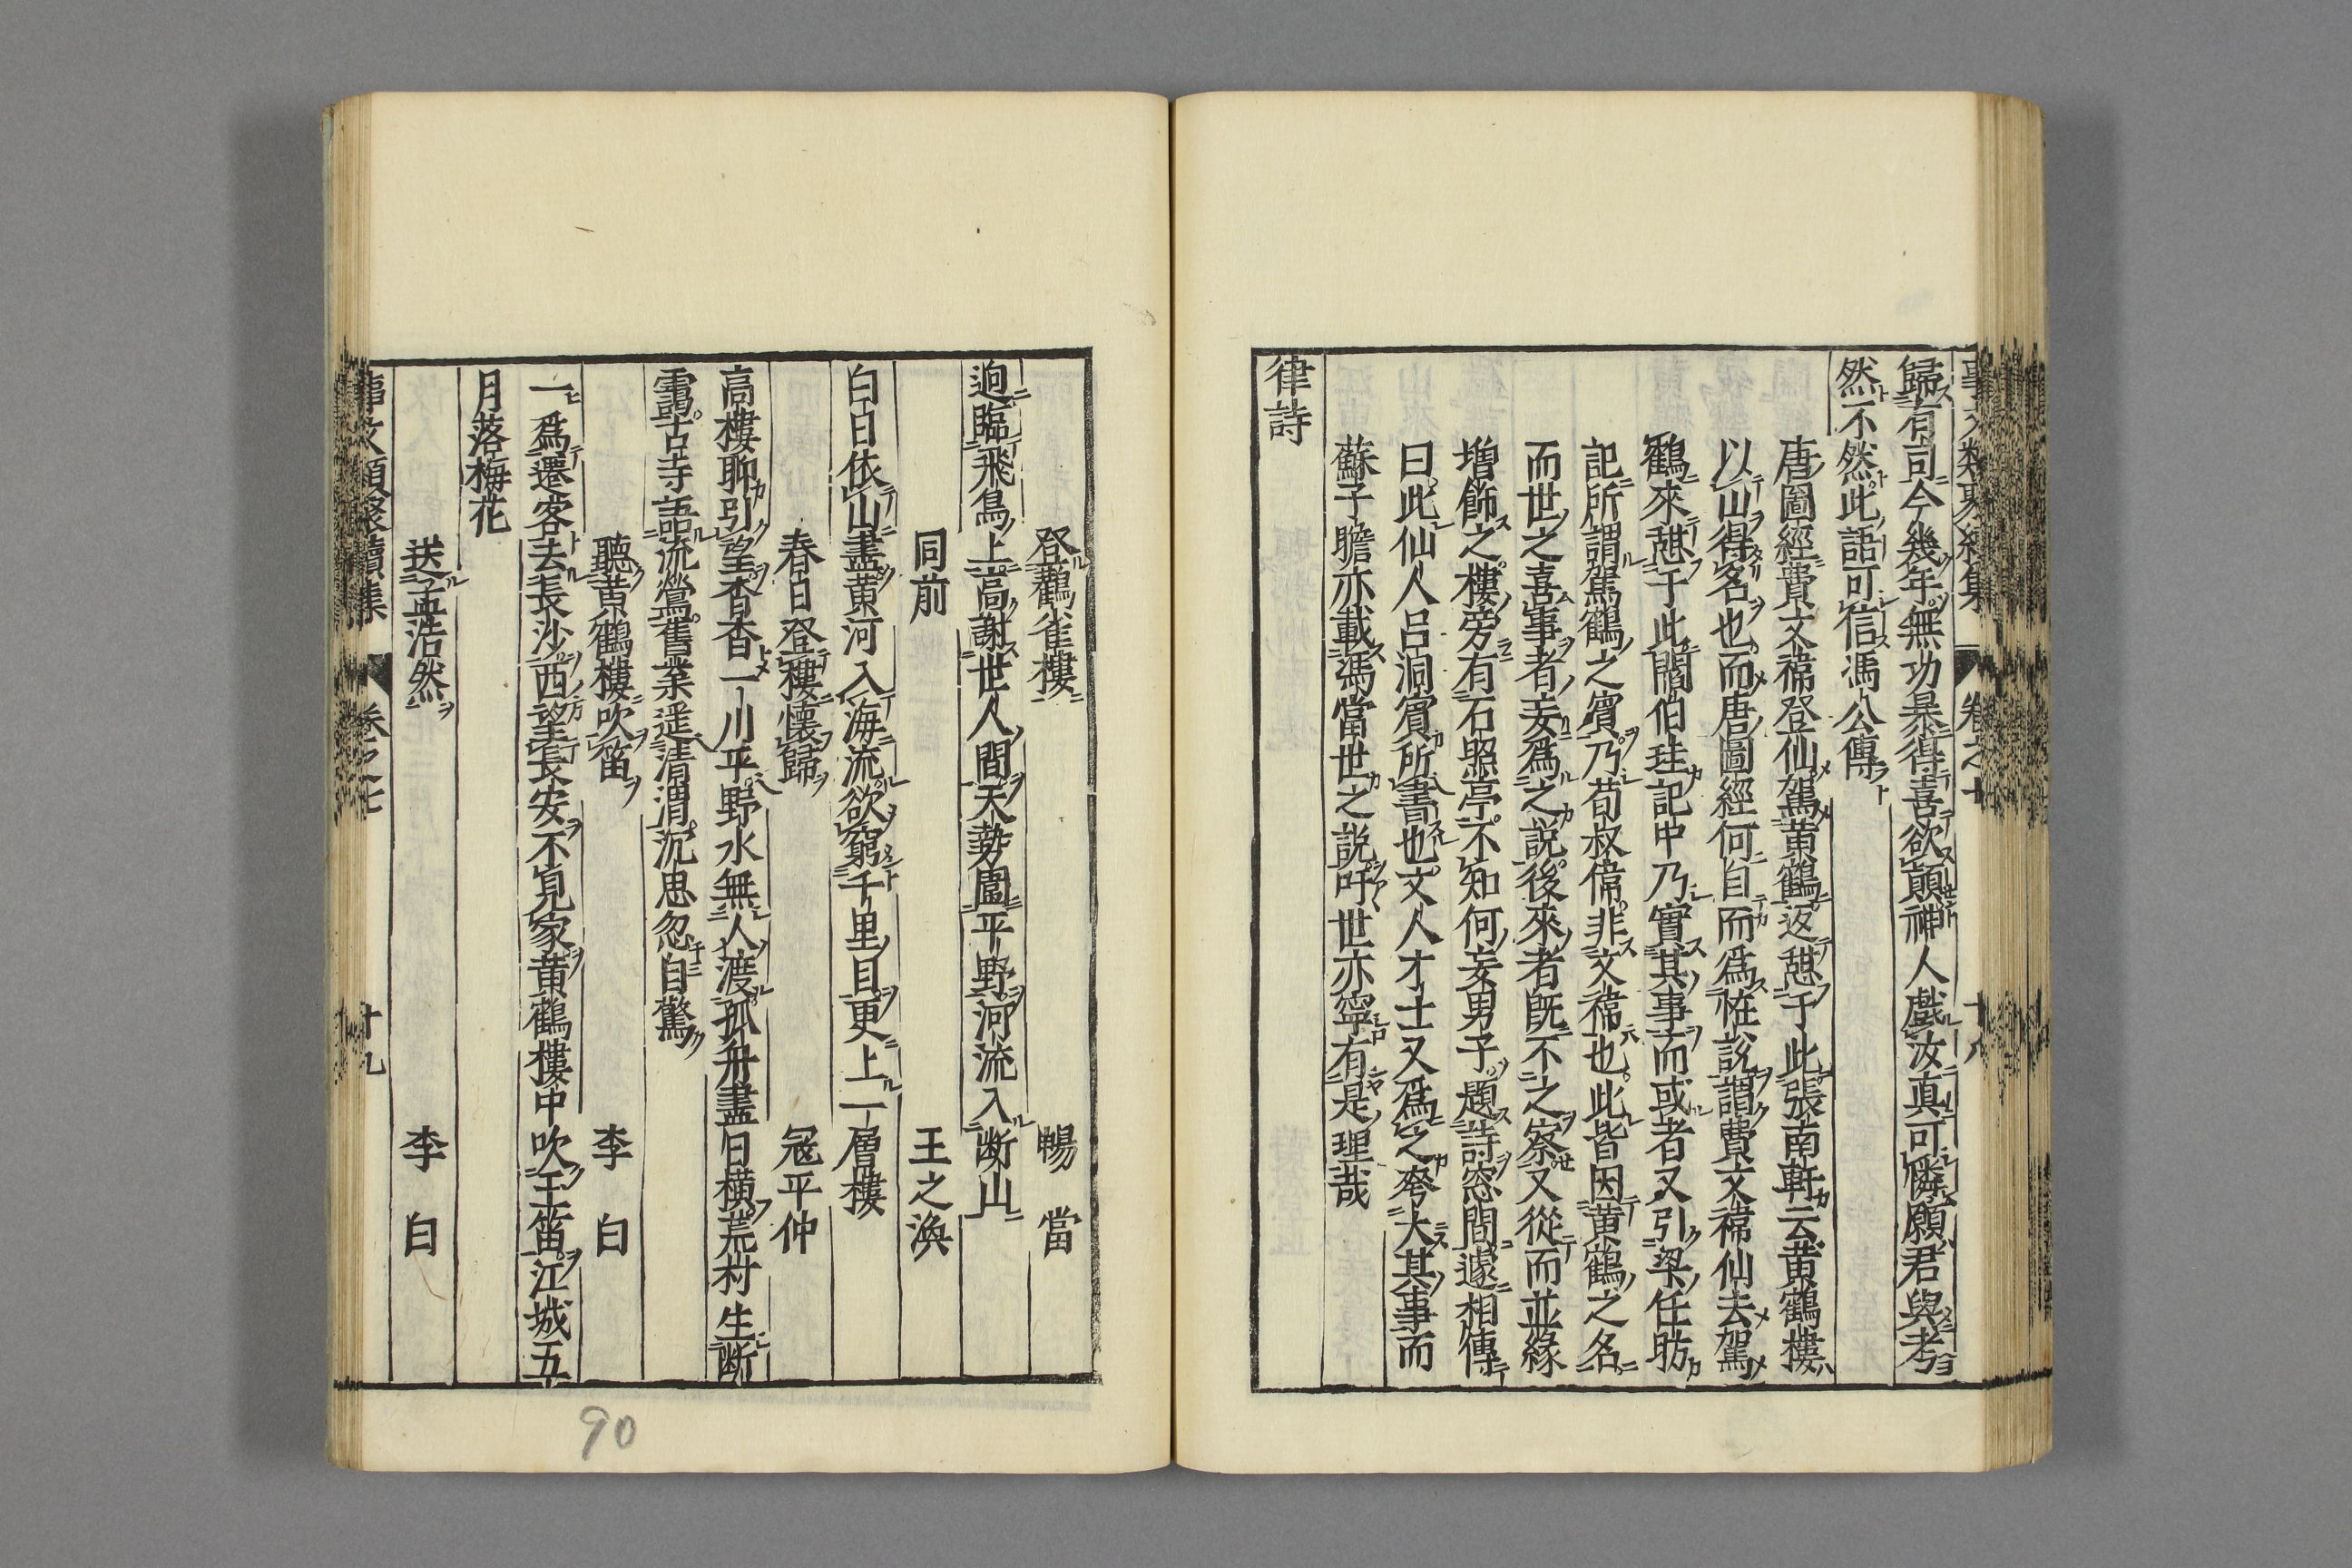 歸有司今幾年無功暴得喜欲顚神人戲汝真可憐願君與考
然不然此語可信馮公傳
唐圖經費文禕登仙駕黃鶴返憇于此張南軒云黃鶴樓
以山得名也而唐圖經何自而爲恠說謂費文禕仙去駕
鶴來憇于此閻伯珪記中乃實其事而或者又引梁任昉
記所謂駕鶴之賓乃荀叔偉非文禕也此皆因黃鶴之名
而世之喜事者妄爲之說後來者旣不之察又從而並緣
增飾之樓旁有石照亭不知何妄男子題詩窓間遽相傳
曰此仙人呂洞賓所書也文人才士又爲之夸大其事而
蘇子瞻亦載馮當世之說吁世亦寧有是理哉
律詩
登鸛雀樓 暢當
逈臨飛鳥上高謝世人間天勢圍平野河流入断山
同前 王之渙
白日依山盡黃河入海流欲窮千里目更上一層樓
春日登樓懷歸 冦平仲
高樓聊引望杳杳一川平野水無人渡孤舟盡日橫荒村生断
靄古寺語流鶯舊業遥清渭沉思忽自驚
聽黃鶴樓吹笛 李白
一爲遷客去長沙西望長安不見家黃鶴樓中吹玉笛江城五
月落梅花
送孟浩然 李白
事文類聚續集 卷之七 十九